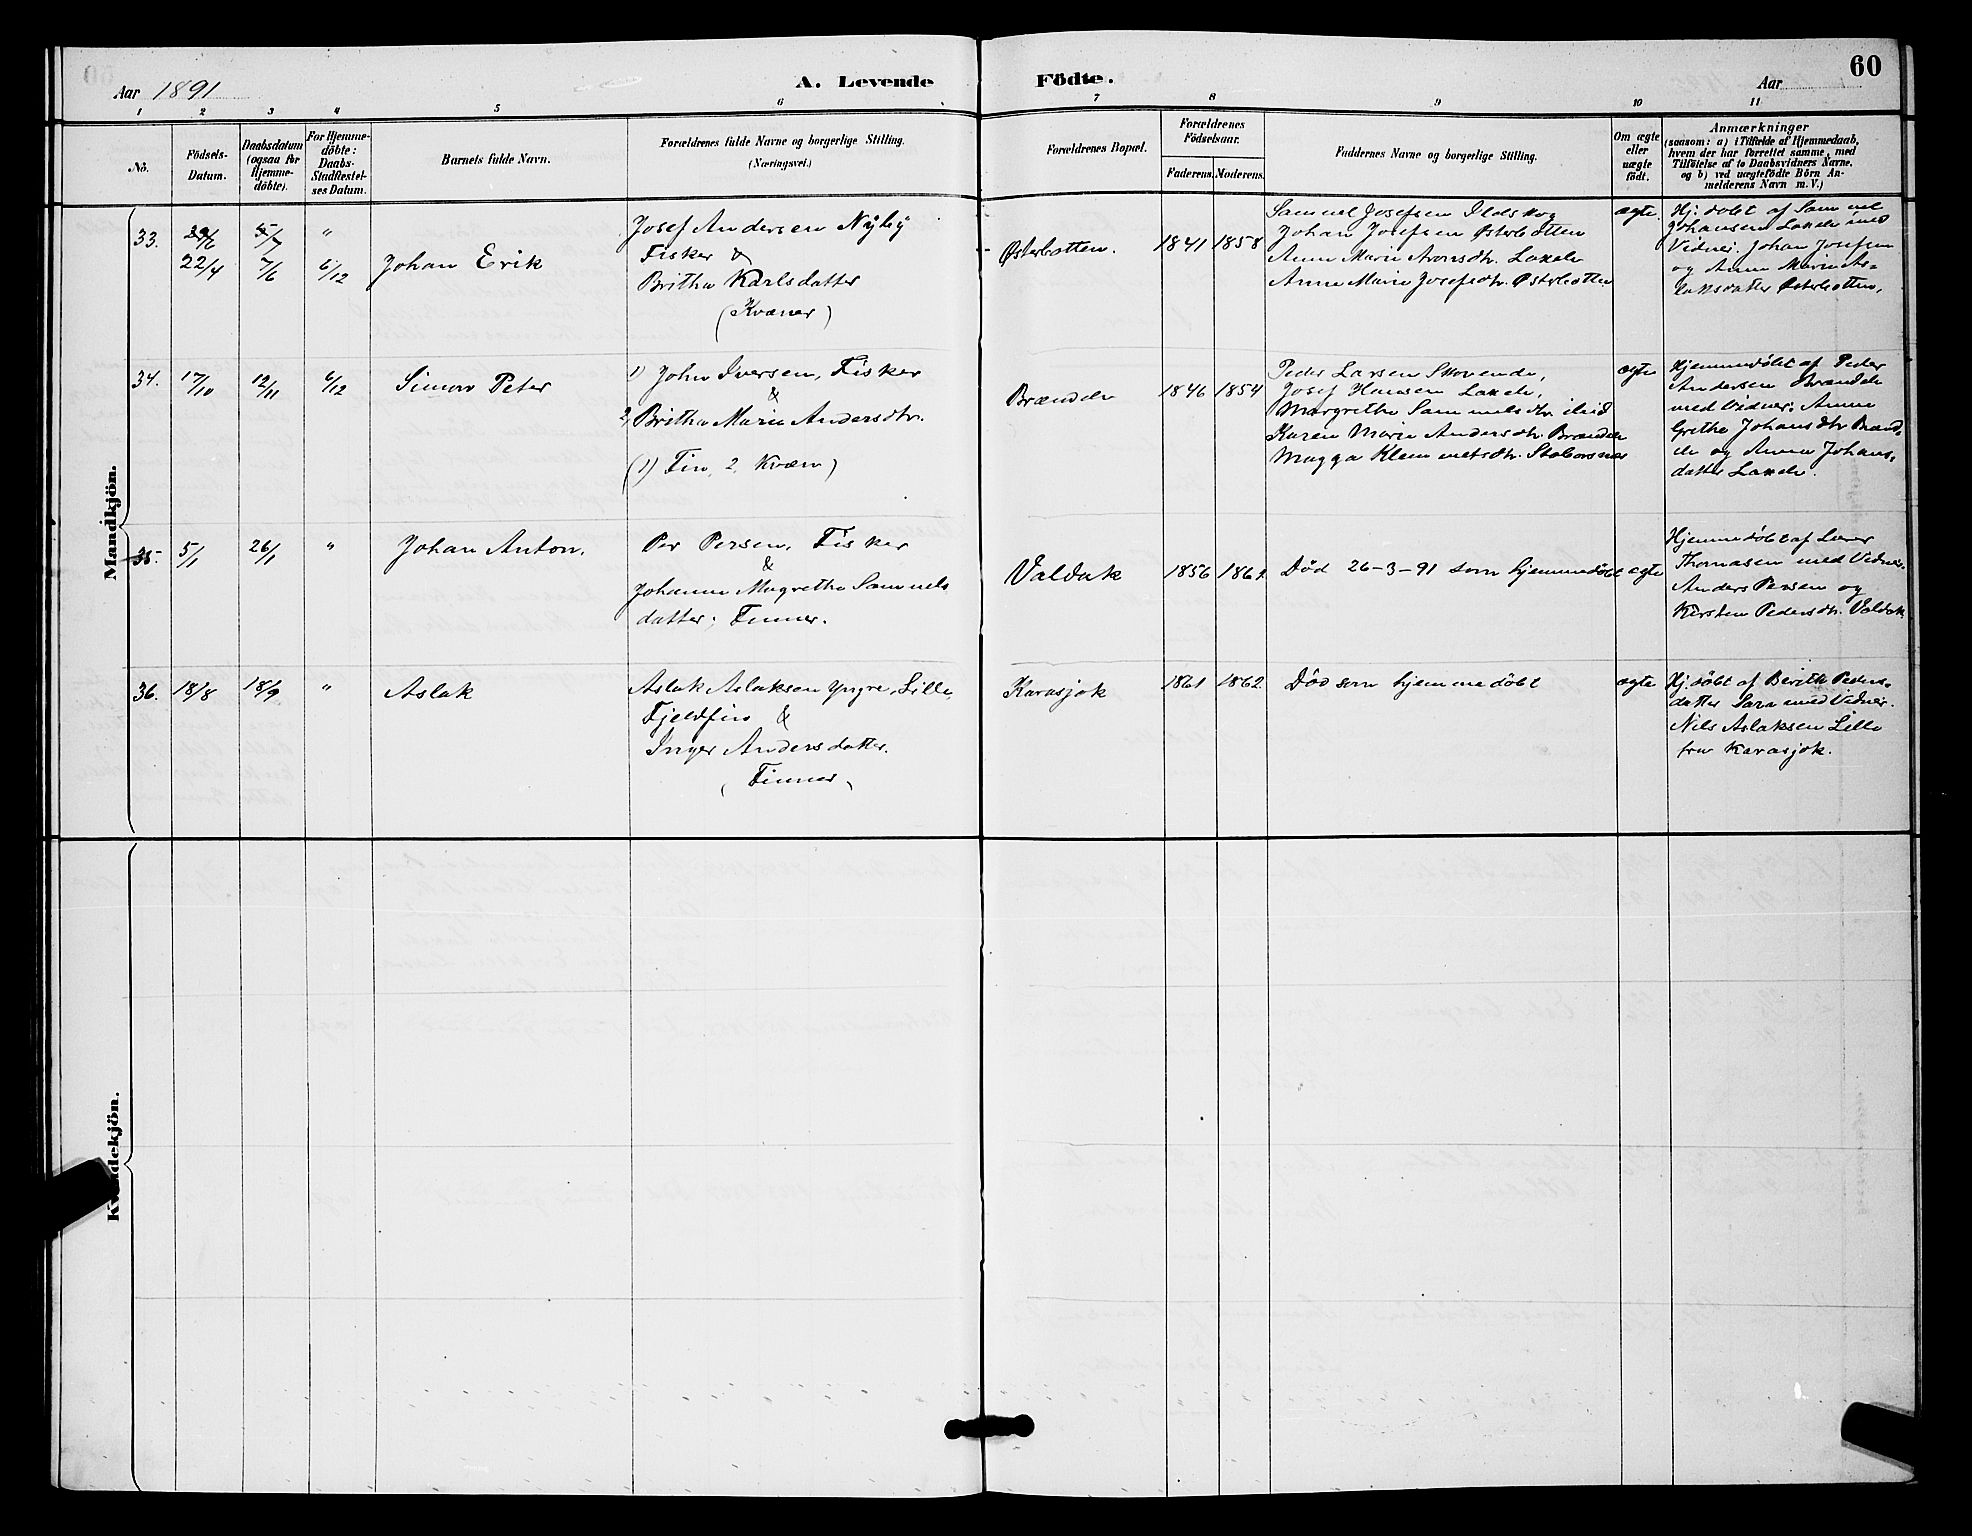 60
Aar 1891
A. Levende
Födte.
Aar
1 2 3 4 5 6 7 8 9 10 11
No.
Födsels-
Datum.
Daabsdatum
(ogsaa for
Hjemme-
döbte).
For Hjemme-
döbte:
Daabs-
Stadfæstel-
ses Datum.
Barnets fulde Navn.
Forældrenes fulde Navne og borgerlige Stilling.
(Næringsvei.)
Forældrenes Bopæl.
Forældrenes
Födselsaar.
Faderens. Moderens.
Faddernes Navne og borgerlige Stilling.
Om ægte
eller
uægte
födt.
Anmærkninger
(saasom: a) i Tilfælde af Hjemmedaab,
hvem der har forrettet samme, med
Tilföielse af to Daabsvidners Navne,
og b) ved uægtefödte Börn An-
melderens Navn m. V.)
Mandkjön.
33.
29/6 5/7 "
22/4 7/6 6/12
Johan Erik
Josef Andersen Nyby
Fisker &
Britha Karlsdatter
(Kvæner)
Østerbotten.
1841 1858
Samuel Josefsen
Johan Josefsen Østerbotten
Anne Marie Aronsdtr. Lakelv
Anne Marie Josefsdtr. Østerbotten
ægte.
Hj: döbt af Samuel
Johansen Lakelv med
Vidner. Johan Josefsen
og Anne Marie As-
laksdatter Østerbotten.
34. 17/10 12/11 6/12
Simon Peter
1) John Iversen, Fisker
&
2, Britha Marie Andersdtr.
(1) Fin, 2, Kvæn)
Brændelv
1846 1854
Peder Larsen Skovende,
Josef Hansen Lakelv,
Margrethe Sammelsdtr. ibid
Karen Marie Andersdtr. Brændelv
Magga Klemmetsdtr. Stabursnæs
ægte
Hjemmedöbt af Peder
Andersen Brændelv
med Vidner: Anne
Grethe Johansdtr Brænd-
elv og Anna Johans-
datter Lakelv.
35. 5/1 26/1 "
Johan Anton.
Per Persen, Fisker
&
Johanne Magrethe Sammels
datter; Finner.
Valdak
1856 1862
Död 26-3-91 som hjemmedöbt
ægte
Hjemmedöbt af Lærer
Thomasen med Vidner.
Anders Persen og
Kirsten Pedersdtr. Valdak.
36. 18/8 18/9 "
Aslak
Aslak Aslaksen yngre, Lille,
Fjeldfin &
Inger Andersdatter.
(Finner)
Karasjok
1861 1862
Död som hjemmedöbt
ægte
Hj. döbt af Berith Peders-
datter Sara med Vidner.
Nils Aslaksen Lille
fra Karasjok.
Kvindekjön.